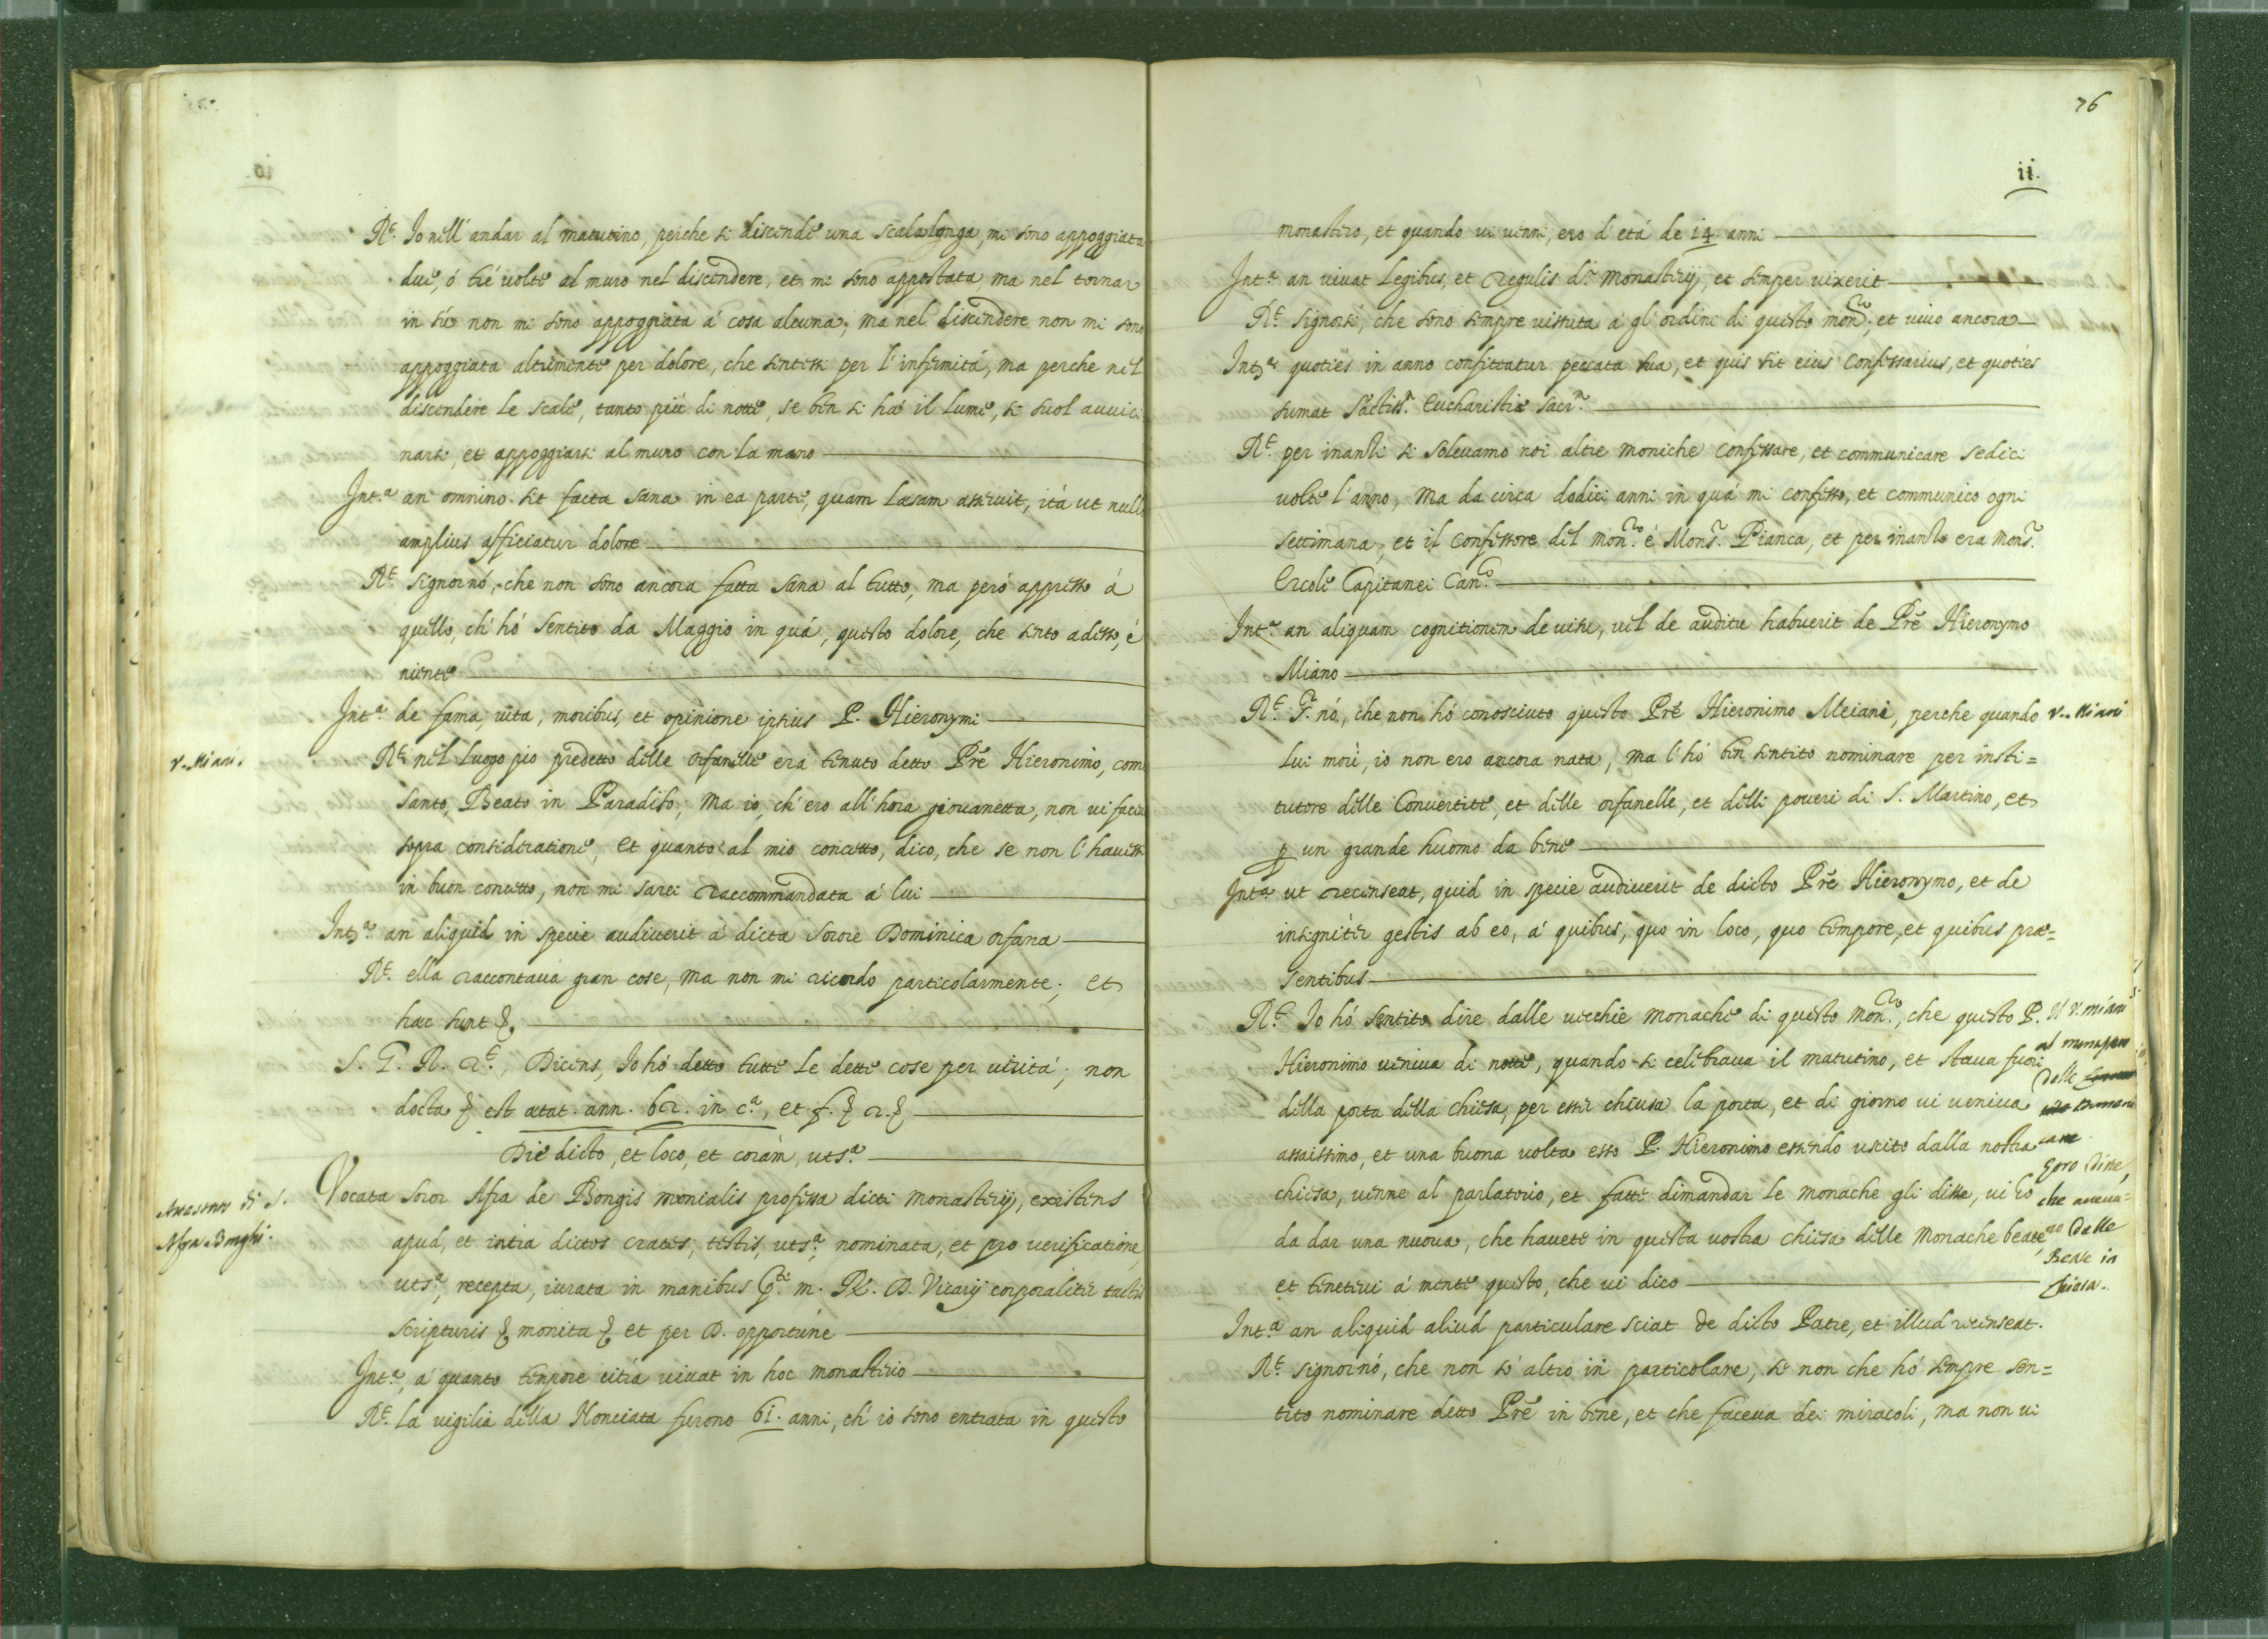 R.t Io nell' andar al matutino, perche si discende una scala longa, mi sono appoggiata
due, ó tré volte al muro nel discendere, et mi sono appostata, ma nel tornar
in sú non mi sono appoggiata á cosa alcuna, ma nel discendere non mi sono
appoggiata altrimente per dolore, che sentissi per l'infirmitá, ma perche nel
discendere le scale, tanto piú di notte, se ben si há il lume, si suol avvici
narsi, et appoggiarsi al muro con la mano
Int.a an omnino sit facta sana in ea parte, quam læsam asseruit, itá ut nullo
amplius afficiatur dolore
R.t signornó, che non sono ancora fatta sana al tutto, ma peró appresso á
quello, ch' hó sentito da Maggio in quá, questo dolore, che sento adesso, é
niente
Int.a de fama, vita, moribus, et opinione ipsius P. Hieronymi
V. Miani
R.t nel luogo pio predetto delle orfanelle era tenuto detto Pré Hieronimo, come
santo, Beato in Paradiso; ma io, ch' ero all' hora giovanetta, non vi faceva
sopra consideratione, et quanto al mio concetto, dico, che se non l' havessi
in buon concetto, non mi sarei raccommandata á lui
Int.a an aliquid in specie audiverit á dicta sorore Dominica orfana
R.t ella raccontava gran cose, ma non mi ricordo particolarmente; et
hæc sunt &.
S. G. R. R.t, Dicens, Io hó detto tutte le dette cose per veritá; non
docta & est ætat. ann. 62. in c.a, et f. & r. &
Die dicto, et loco, et coràm, uts.a
di S.
Afra Borghi.
Vocata soror Afra de Bongis monialis professa dicti monasterij, existens
apud, et intra dictos crates, testis, uts.a, nominata, et pro verificatione,
uts.a, recepta, iurata in manibus p.ti m. R. D. Vicarij corporaliter tactis
scripturis & monita & et per D. opportúne
Int.a, á quanto tempore citrá vivat in hoc monasterio
R.t la vigilia della Nonciata furono 61. anni, ch' io sono entrata in questo
76
ii.
monastero, et quando vi venni, ero d' etá de 14. anni
Int.a an vivat legibus, et regulis d.i monasterij, et semper vixerit
R.t signorsi, che sono sempre vissuta á gl' ordini di questo mon.ro, et vivo ancora
Int.a quoties in anno confiteatur peccata sua, et quis sit eius confessarius, et quoties
sumat S.ctiss.æ Eucharistiæ sacr.m
R.t per inanti si solevamo noi altre moniche confessare, et communicare sedici
volte l' anno, ma da circa dodici anni in quá mi confesso, et communico ogni
settimana, et il confessore del mon.ro é Mons.r Pianca, et per inante era mons.r
Ercole Capitanei Can.co
Int.a an aliquam cognitionem de visu, vel de auditu habuerit de Pre Hieronymo
Miano
R.t S.r nó, che non hó conosciuto questo Pré Hieronimo Meiani, perche quando
V. Miani
lui morí, io non ero ancora nata, ma l' hó ben sentito nominare per insti=
tutore delle Convertite, et delle orfanelle, et delli poveri di S. Martino, et
p un grande huomo da bene
Int.a ut recenseat, quid in specie audiverit de dicto Pre Hieronymo, et de
insignitèr gestis ab eo, á quibus, quo in loco, quo tempore, et quibus præ=
sentibus
R.t Io hó sentito dire dalle vecchie monache di questo mon.ro, che questo P.
Hieronimo veniva di notte, quando si celebrava il matutino, et stava fuori
della porta della chiesa, per esser chiusa la porta, et di giorno vi veniva
assaissimo, et una buona volta esso P. Hieronimo essendo uscito dalla nostra
chiesa, venne al parlatorio, et fatte dimandar le monache gli disse, vi hó
da dar una nuova, che havete in questa vostra chiesa delle monache beate,
et tenetevi á mente questo, che vi dico
Il V. Miani
al
Delle
loro Disse,
che aveva=
no Delle
Beate in
chiesa.
Int.a an aliquid aliud particulare sciat de dicto Patre, et illud recenseat.
R.t signornó, che non só altro in particolare, se non che hó sempre sen=
tito nominare detto Pré in bene, et che faceva dei miracoli, ma non vi